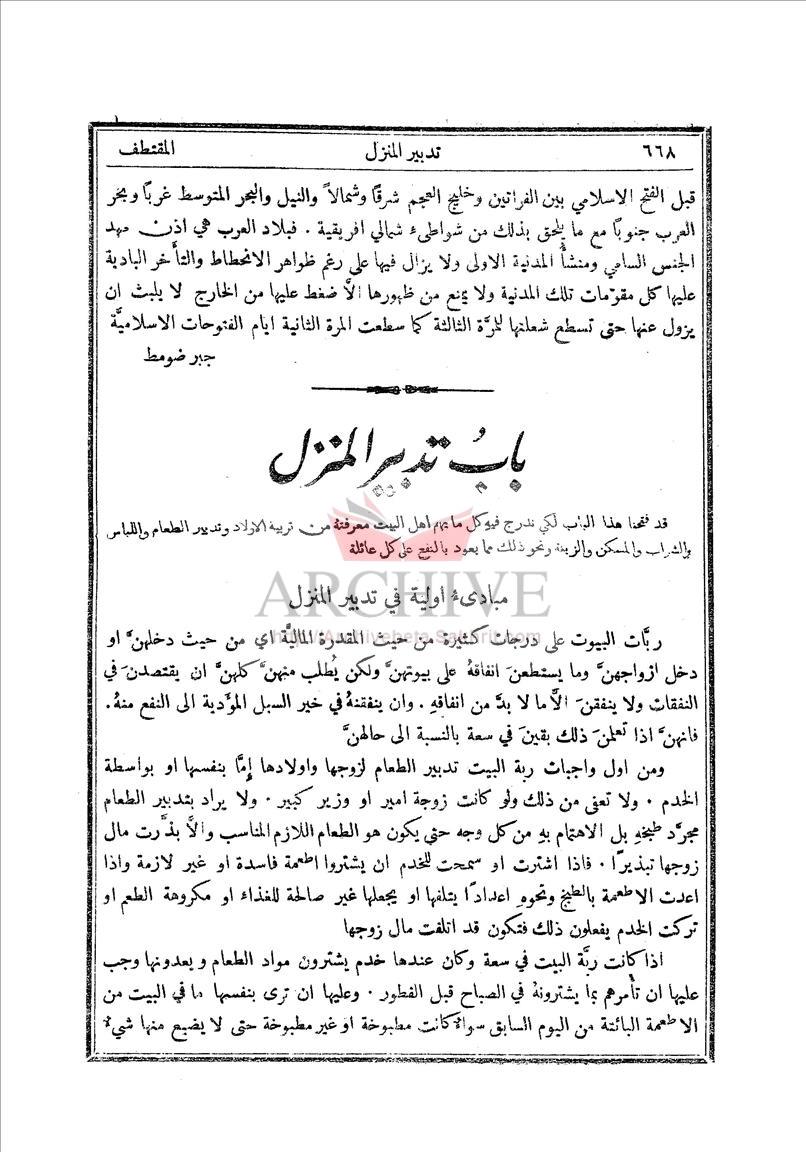 ٦٦٨ تدبير المنزل المقتطف
قبل الفتح الاسلامي بين الفراتين وخليج العجم شرقًا وشمالاً والنيل والبحر المتوسط غربًا وبحر
العرب جنوبًا مع ما يلحق بذلك من شواطىء شمالي افريقية . فبلاد العرب هي اذن مهد
الجنس السامي ومنشأُ المدنية الاولى ولا يزال فيها على رغم ظواهر الانحطاط والتأخر البادية
عليها كل مقوّمات تلك المدنية ولا يمنع من ظهورها الاَّ ضغط عليها من الخارج لا يلبث ان
يزول عنها حتى تسطع شعلتها للمرَّة الثالثة كما سطعت المرة الثانية ايام الفتوحات الاسلاميَّة
جبر ضومط
بابُ تدبير المنزل
قد فتحنا هذا الباب لكي ندرج فيهِ كل ما يهم اهل البيت معرفتهُ من تربية الاولاد وتدبير الطعام واللباس
والشراب والمسكن والزينة ونحو ذلك مما يعود بالنفع على كل عائلة
ARCHIVE
http://Archivebeta.Sakhrit.com
مبادىءُ اولية في تدبير المنزل
ربَّات البيوت على درجات كثيرة من حيث المقدرة الماليَّة اي من حيث دخلهنَّ او
دخل ازواجهنَّ وما يستطعنَ انفاقهُ على بيوتهنَّ ولكن يُطلب منهنَّ كلهنَّ ان يقتصدنَ في
النفقات ولا ينفقنَ الاَّ ما لا بدَّ من انفاقهِ . وان ينفقنهُ في خير السبل المؤَدية الى النفع منهُ .
فانهنَّ اذا تعلمنَ ذلك بقينَ في سعة بالنسبة الى حالهنَّ
ومن اول واجبات ربة البيت تدبير الطعام لزوجها واولادها إِمَّا بنفسها او بواسطة
الخدم . ولا تعفى من ذلك ولو كانت زوجة امير او وزير كبير . ولا يراد بتدبير الطعام
مجرَّد طبخهِ بل الاهتمام بهِ من كل وجه حتى يكون هو الطعام اللازم المناسب والاَّ بذَّرت مال
زوجها تبذيرًا . فاذا اشترت او سمحت للخدم ان يشتروا اطعمة فاسدة او غير لازمة واذا
اعدت الاطعمة بالطبخ ونحوهِ اعدادًا يتلفها او يجعلها غير صالحة للغذاء او مكروهة الطعم او
تركت الخدم يفعلون ذلك فتكون قد اتلفت مال زوجها
اذا كانت ربَّة البيت في سعة وكان عندها خدم يشترون مواد الطعام ويعدونها وجب
عليها ان تأْمرهم بما يشترونهُ في الصباح قبل الفطور . وعليها ان ترى بنفسها ما في البيت من
الاطعمة البائتة من اليوم السابق سوالا كانت مطبوخة او غير مطبوخة حتى لا يضيع منها شيءٌ